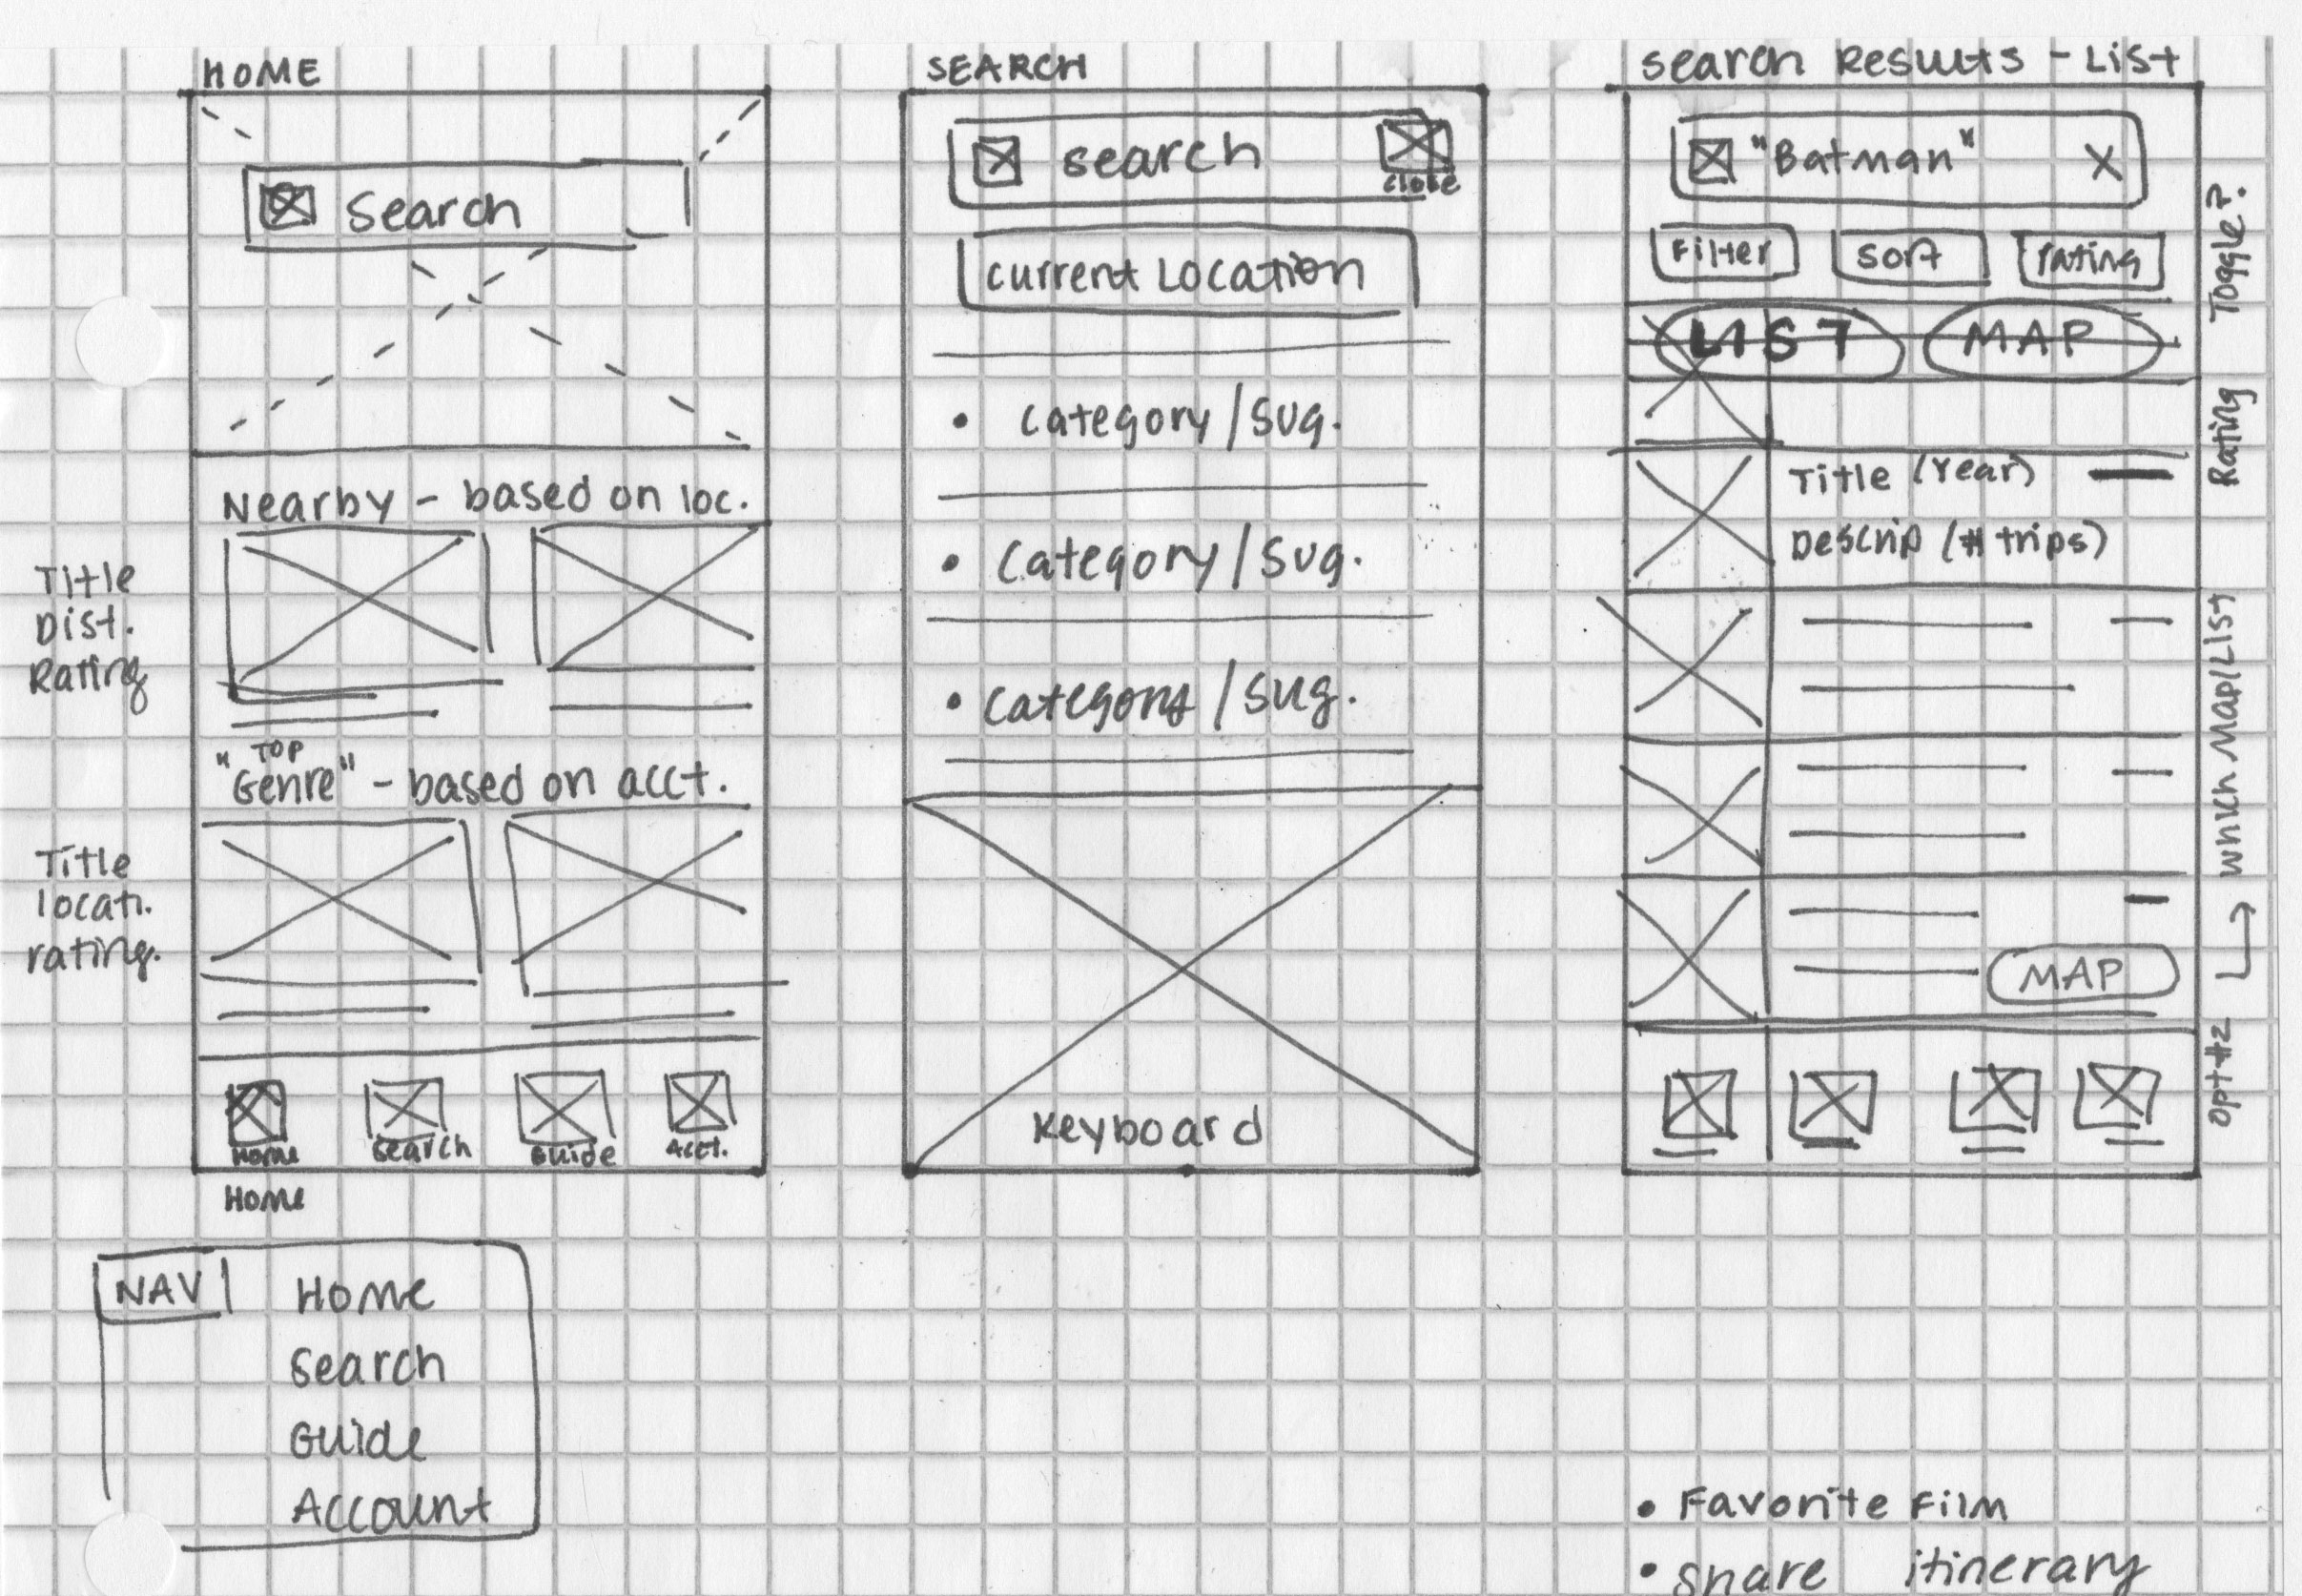 HOME
Search
Nearby - based on loc.
Title
Dist.
Rating
"TOP
Genre" - based on acct.
Title
locati.
rating.
Home
Search
Guide
Acct.
Home
NAV
Home
Search
Guide
Account
SEARCH
search
close
current Location
• category / sug.
• category / sug.
• category / sug.
Keyboard
search Results - List
"Batman"
X
Filter
sort
rating
LIST
MAP
Title (Year)
Descrip (# trips)
MAP
Toggle?
Rating
which Map/List
opt #2
• Favorite Film
• share itinerary